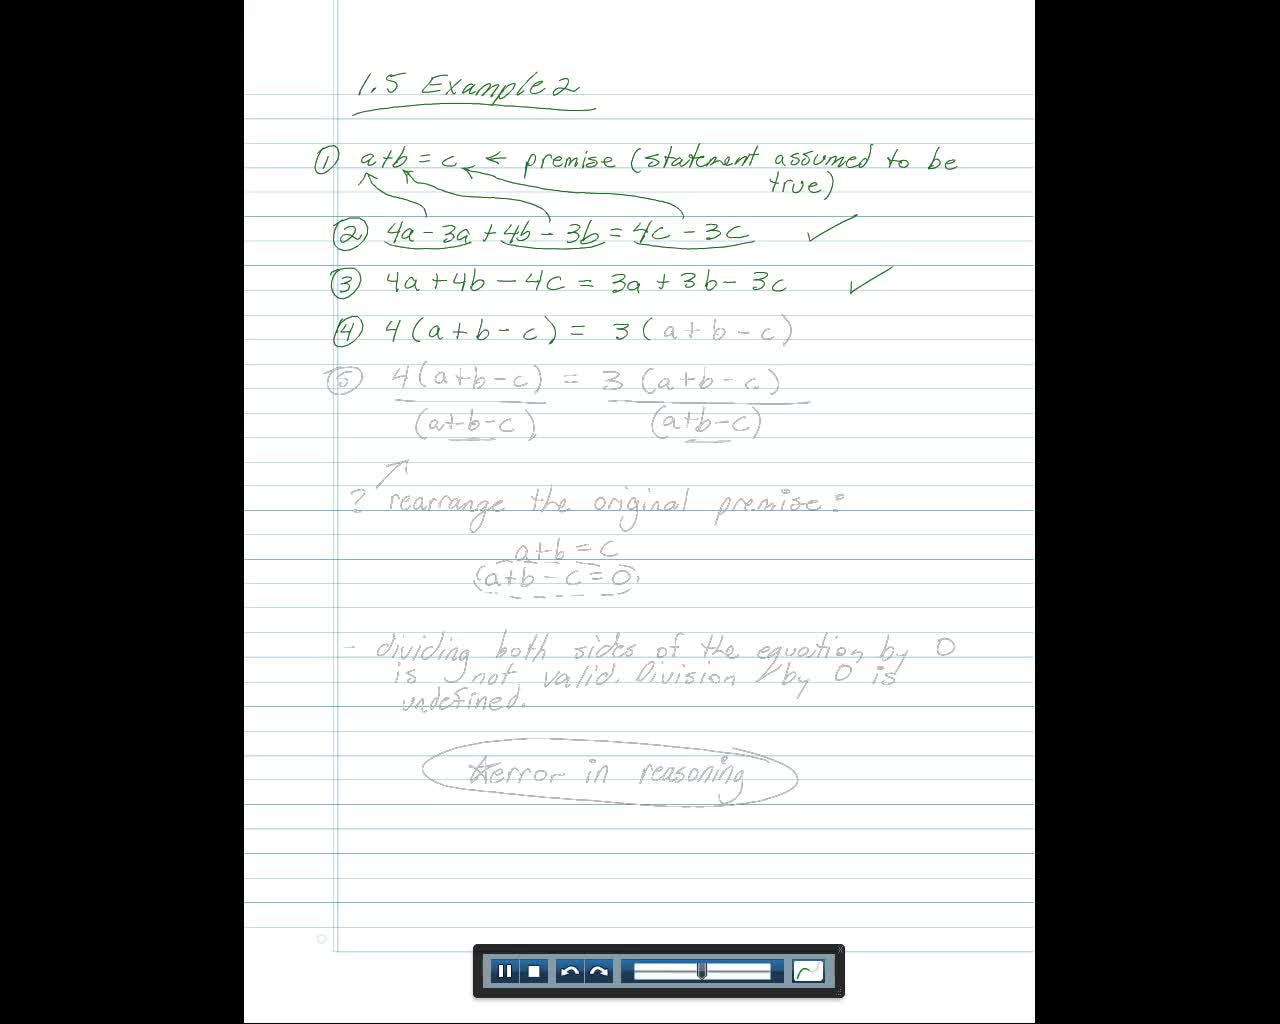 1.5 Example 2
① a+b = c ← premise (statement assumed to be
true)
② 4a - 3a + 4b - 3b = 4c - 3c ✓
③ 4a + 4b - 4c = 3a + 3b - 3c ✓
④ 4(a+b-c) = 3(a+b-c)
⑤ 4(a+b-c) = 3(a+b-c)
(a+b-c) (a+b-c)
? rearrange the original premise:
a+b = c
(a+b-c=0)
- dividing both sides of the equation by 0
is not valid. Division by 0 is
undefined.
☆error in reasoning